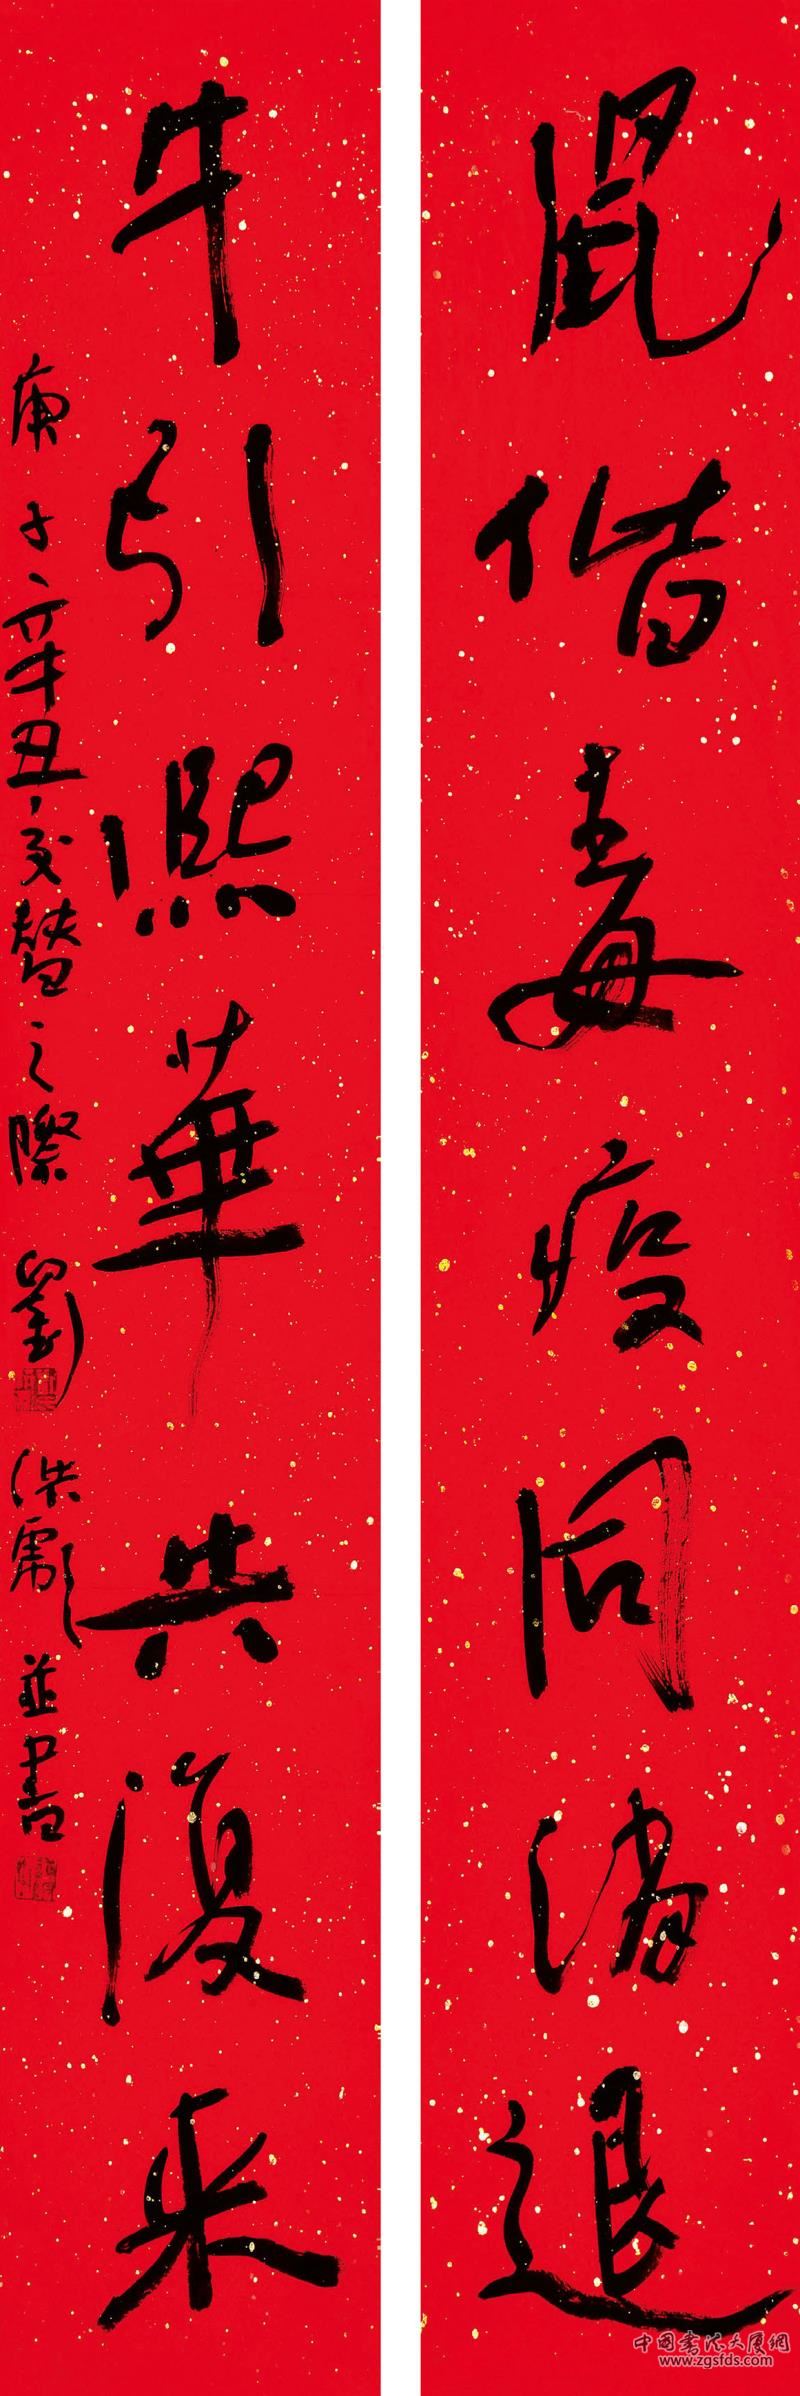 鼠偕毒疫同消退
牛引熙華共復来
庚子辛丑交替之際 劉洪彪並書
中国书法大厦網
www.zgsfds.com